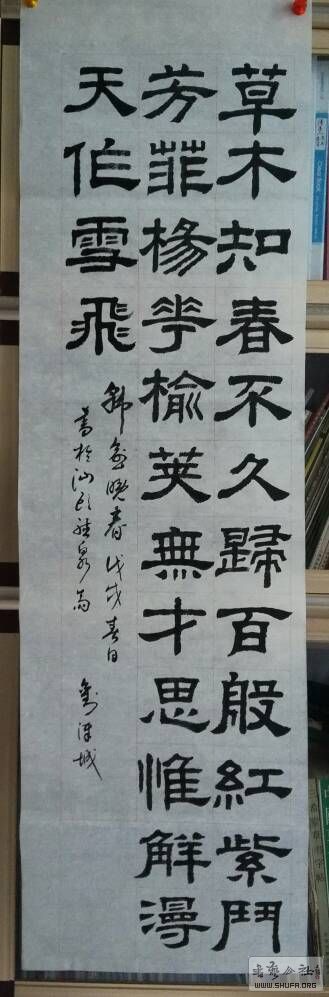 草木知春不久歸百般紅紫鬥
芳菲楊花榆莢無才思惟解漫
天作雪飛
韩愈晚春 戊戌春日
書於汕頭 劉澤城
書藝公社
WWW.SHUFA.ORG